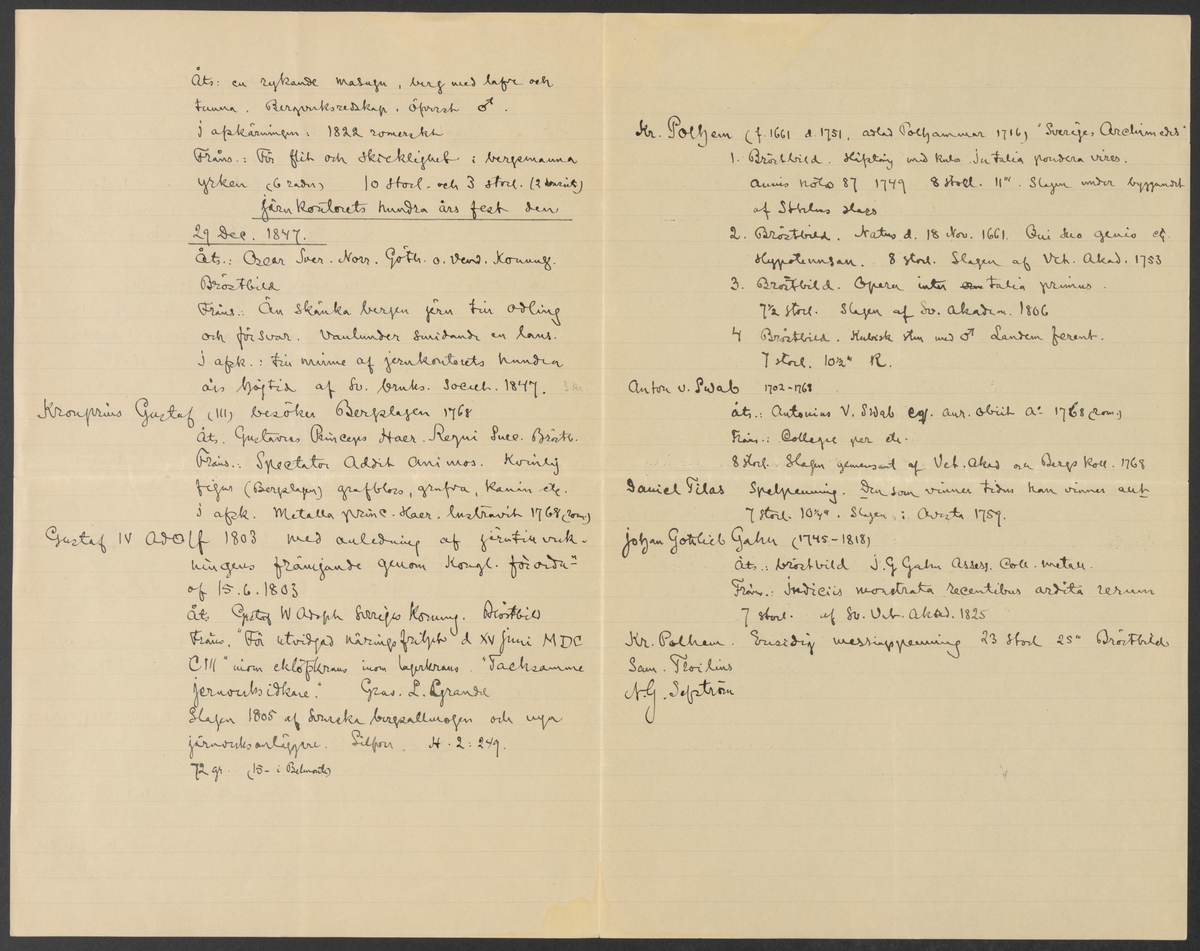 Åts: en rykande masugn, berg med lafve och
tunna. Bergverksredskap. Öfverst ♂.
I afskärningen: 1822 romerskt
Fråns.: För flit och skicklighet i bergsmanna
yrken (6 rader) 10 storl. och 3 storl. (2 )
Järnkontorets hundra års fest den
29 Dec. 1847.
Åts.: Oscar Sver. Norr. Göth. o. Vend. Konung.
Bröstbild
Fråns.: Än skänka bergen jern till odling
och försvar. Vaulunder smidande en lans.
I afsk.: till minne af jernkontorets hundra
års högtid af Sv. bruks. Societ. 1847.
Kronprins Gustaf (III) besöker Bergslagen 1768
Åts. Gustavus Princeps Haer. Regni Suec. Bröstb.
Fråns.: Spectator Addit Animos. Kvinlig
figur (Bergslagen) grafblos, grufva, kanin etc.
I afsk. Metalla princ. Haer. lustravit 1768 (rom.)
Gustaf IV Adolf 1803 med anledning af järntillverk-
ningens främjande genom Kongl. förordn
af 15.6.1803
Åts Gustaf IV Adolph Sveriges Konung. Bröstbild
Fråns. "För utvidgad näringsfrihet d XV Juni MDC
CIII" inom eklöfkrans inom lagerkrans. "Tacksamme
jernverksidkare." Grav. L. Grandel
Slagen 1805 af Svenska bergsallmogen och nya
järnverksanläggare. Silfver. H. 2: 249.
72 gr. (15- i Belmonts)
Kr. Polhem (f. 1661 d. 1751, adlad Polhammar 1716) "Sveriges Archimedes"
1. Bröstbild. Häftång med kula. In talia pondera vires.
Annis nolo 87 1749 8 storl. 11''' Slagen under byggandet
af Sthlms slass
2. Bröstbild. Natus d. 18 Nov. 1661. Qui suo genio etc.
Hypotenusan. 8 storl. Slagen af Vet. Akad. 1753
3. Bröstbild. Opera inter talia primus.
7½ storl. Slagen af Sv. Akadem. 1806
4 Bröstbild. Kubisk sten med ♂ Laudem ferent.
7 storl. 10½''' R.
Anton v. Swab 1702-1768
Åts.: Antonius V. Swab eq. aur. Obiit Ao 1768 (rom.)
Fråns.: Collegae per etc.
8 storl. Slagen gemensamt af Vet. Akad och Bergs Koll. 1768
Daniel Tilas Spelpenning. Den som vinner tiden han vinner allt
7 storl. 10¼'''. Slagen i Avesta 1759.
Johan Gottlieb Gahn (1745-1818)
Åts.: bröstbild J. G Gahn Assess. Coll. metall.
Fråns.: Indiciis monstrata recentibus abdita rerum
7 storl. af Sv. Vet. Akad. 1825
Kr. Polhem. Ensidig messingpenning 23 storl 25''' Bröstbild
Sam. Troilius
N.G. Sefström